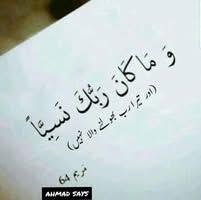 وَ مَا كَانَ رَبُّكَ نَسِيًّا
(اور تیرا رب بھولنے والا نہیں)
مریم 64
AHMAD SAYS